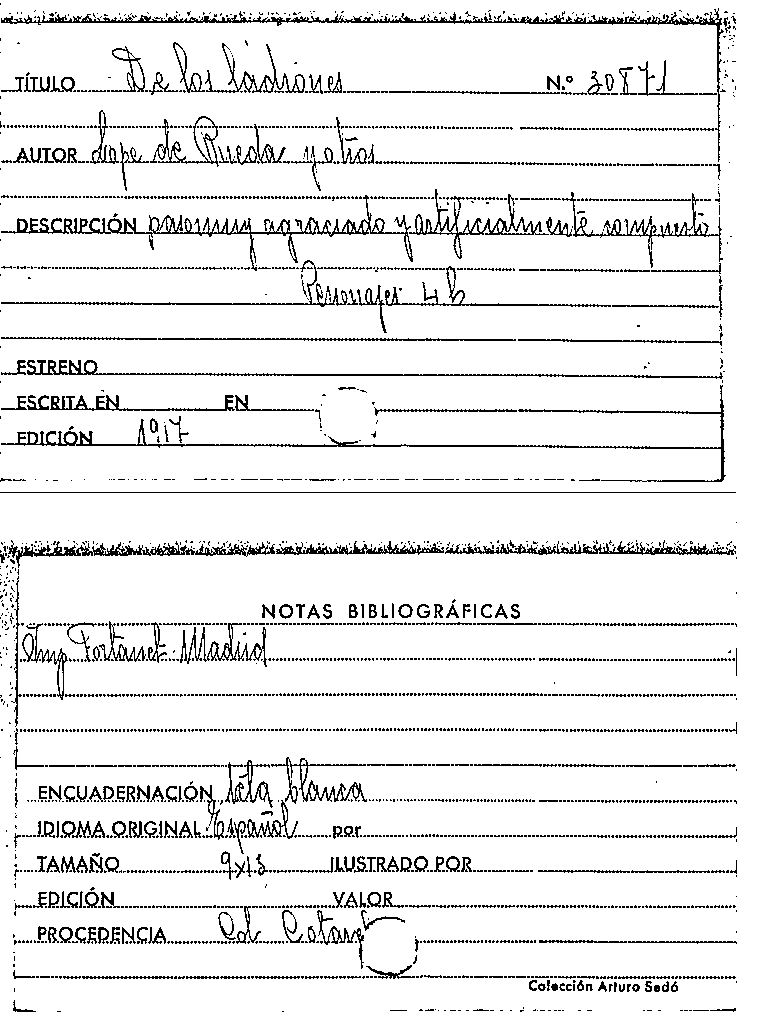 TÍTULO De los ladrones N.º 30871
AUTOR Lope de Rueda y otros
DESCRIPCIÓN paso muy agraciado y artificialmente compuesto
Personajes 4 h
ESTRENO
ESCRITA EN EN
EDICIÓN 1917
NOTAS BIBLIOGRÁFICAS
Imp Fortanet-Madrid
ENCUADERNACIÓN tela blanca
IDIOMA ORIGINAL Español por
TAMAÑO 9x13 ILUSTRADO POR
EDICIÓN VALOR
PROCEDENCIA Col
Colección Arturo Sedó